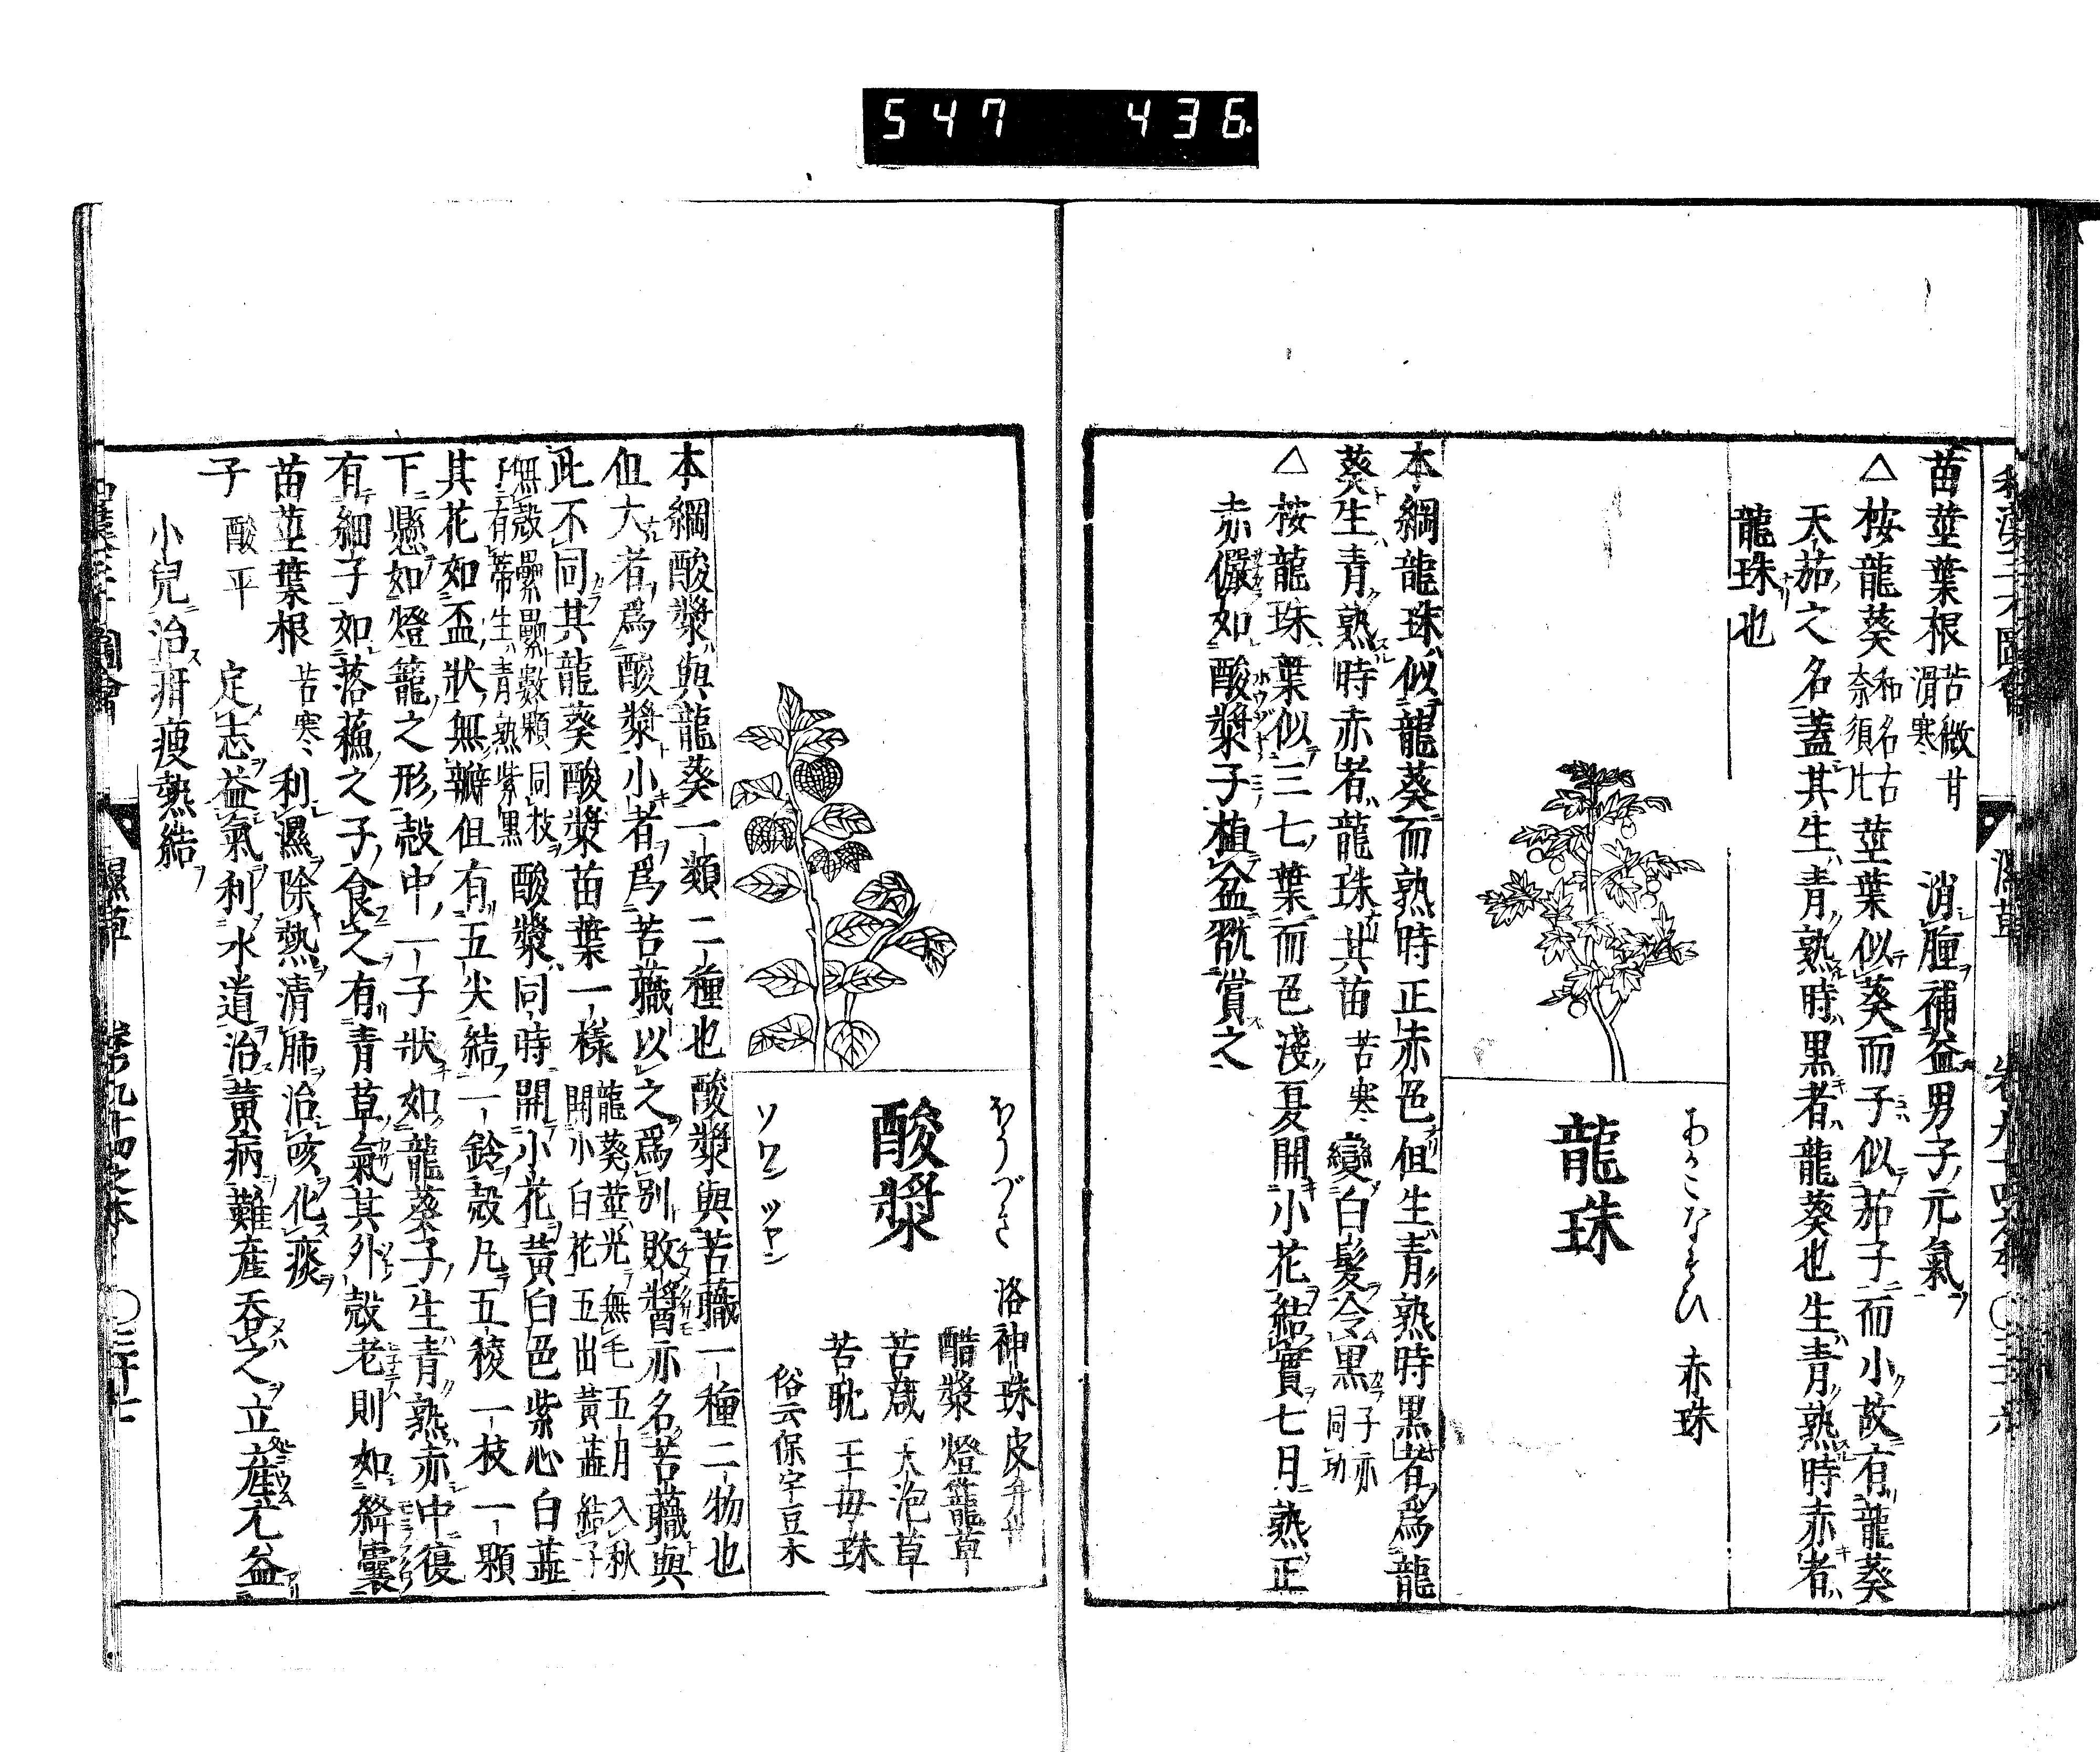 547 436
苗莖葉根 苦微甘滑寒 消腫補益男子元氣
△桉龍葵 和名古奈須比 莖葉似葵而子似茄子而小故有龍葵
天茄之名蓋其生青熟時黒者龍葵也生青熟時赤者
龍珠也
龍珠
赤珠
本綱龍珠似龍葵而熟時正赤色但生青熟時黒者爲龍
葵生青熟時赤者龍珠其苗 苦寒 變白髮令黒 子亦同功
△桉龍珠葉似三七葉而色淺夏開小花結實七月熟正
赤儼如酸漿子植盆翫賞之
ほうづき
酸漿
ソワン ツヤン
洛神珠 皮弁草
醋漿 燈籠草
苦蘵 大泡草
苦耽 王母珠
俗云保宇豆木
本綱酸漿與龍葵一類二種也酸漿與苦蘵一種二物也
但大者爲酸漿小者爲苦蘵以之爲別敗醬亦名苦蘵與
此不同其龍葵酸漿苗葉一樣 龍葵莖光無毛五月入秋開小白花五出黃蕋結子
無殼纍纍數顆同枝子有蒂生青熟紫黒 酸漿同時開小花黃白色紫心白蕋
其花如盃狀無瓣但有五尖結一鈴殼凡五稜一枝一顆
下懸如燈籠之形殼中一子狀如龍葵子生青熟赤中復
有細子如落蘓之子食之有青草氣其外殼老則如絳囊
苗莖葉根 苦寒 利濕除熱清肺治咳化痰
子 酸平 定志益氣利水道治黃病難産吞之立産尤益
小兒治疳瘦熱結
濕草